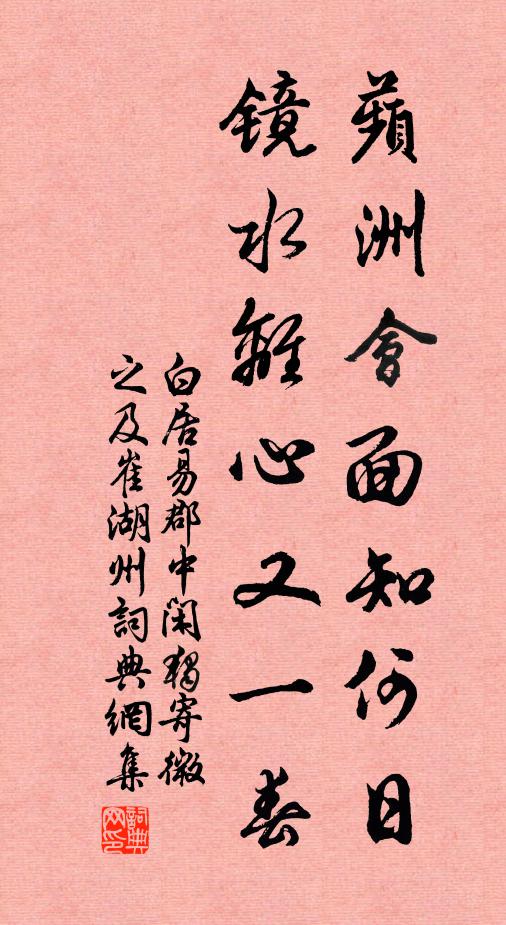 蘋洲會面知何日
鏡水離心又一春
白居易郡中閑獨寄微
之及崔湖州詞典網集
詞典
网印